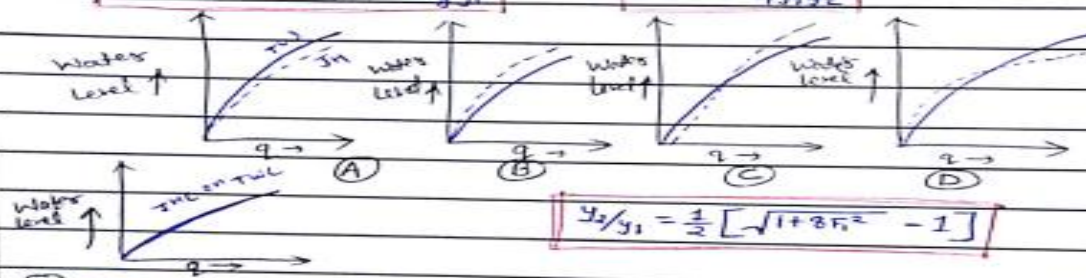 Water Level ↑ TWL JH q → Ⓐ
Water Level ↑ q → Ⓑ
Water Level ↑ q → Ⓒ
Water Level ↑ q → Ⓓ
Water Level ↑ q →
y₂/y₁ = 1/2 [√1+8F₁² - 1]